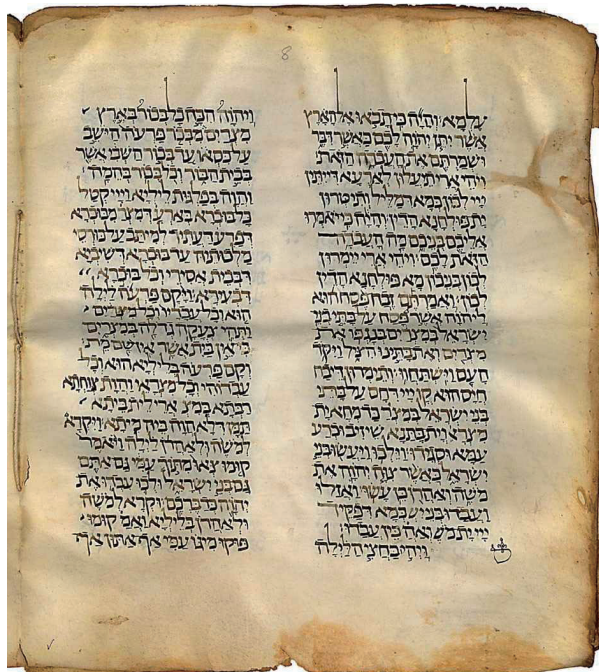 8
עלמא׳ והיה כי תבאו אל הארץ
אשר יתן יהוה לכם כאשר דבר
ושמרתם את העבדה הזאת׳
ויהי ארי תיעלון לארעא דייתין
ייי לכון כמא דמליל ותיטרון
ית פולחנא הדין׳ והיה כי יאמרו
אליכם בניכם מה העבדה
הזאת לכם׳ ויהי ארי יימרון
לכון בניכון מא פולחנא הדין
לכון׳ ואמרתם זבח פסח הוא
ליהוה אשר פסח על בתי בני
ישראל במצרים בנגפו את
מצרים ואת בתינו הציל ויקד
העם וישתחוו׳ ותימרון דיבח
חיס הוא קדם ייי די חס על בתי
בני ישראל במצר׳ כד מחא ית
מצראי וית בתנא שיזיב וכרע
עמא וסגידו׳ וילכו ויעשו בני
ישראל כאשר צוה יהוה את
משה ואהרן כן עשו׳ ואזלו
ועבדו בני יש׳ כמא דפקיד
ייי ית מש׳ ואה׳ כין עבדו׳
ויהי בחצי הלילה
ויהוה הכה כל בכור בארץ
מצרים מבכר פרעה הישב
על כסאו עד בכור השבי אשר
בבית הבור וכל בכור בהמה׳
והוה בפלגות ליליא וייי קטל
כל בוכרא בארעא דמצר׳ מבוכרא
דפרעה דעתיד למיתב על כורסי
מלכותיה עד בוכרא דשיביא
דבבית אסירי וכל בוכרא
דבעירא׳ ויקם פרעה לילה
הוא וכל עבדיו וכל מצרים
ותהי צעקה גדלה במצרים
כי אין בית אשר אין שם מת׳
וקם פרעה בליליא הוא וכל
עבדוהי וכל מצראי והות צוחתא
רבתא במצ׳ ארי לית ביתא
תמן דלא הוה ביה מיתא׳ ויקרא
למשה ולאהרן לילה ויאמר
קומו צאו מתוך עמי גם אתם
גם בני ישראל ולכו עבדו את
יהוה כדברכם׳ וקרא למשה
ולאהרן בליליא ואמ׳ קומו
פוקו מיגו עמי אף אתון אף